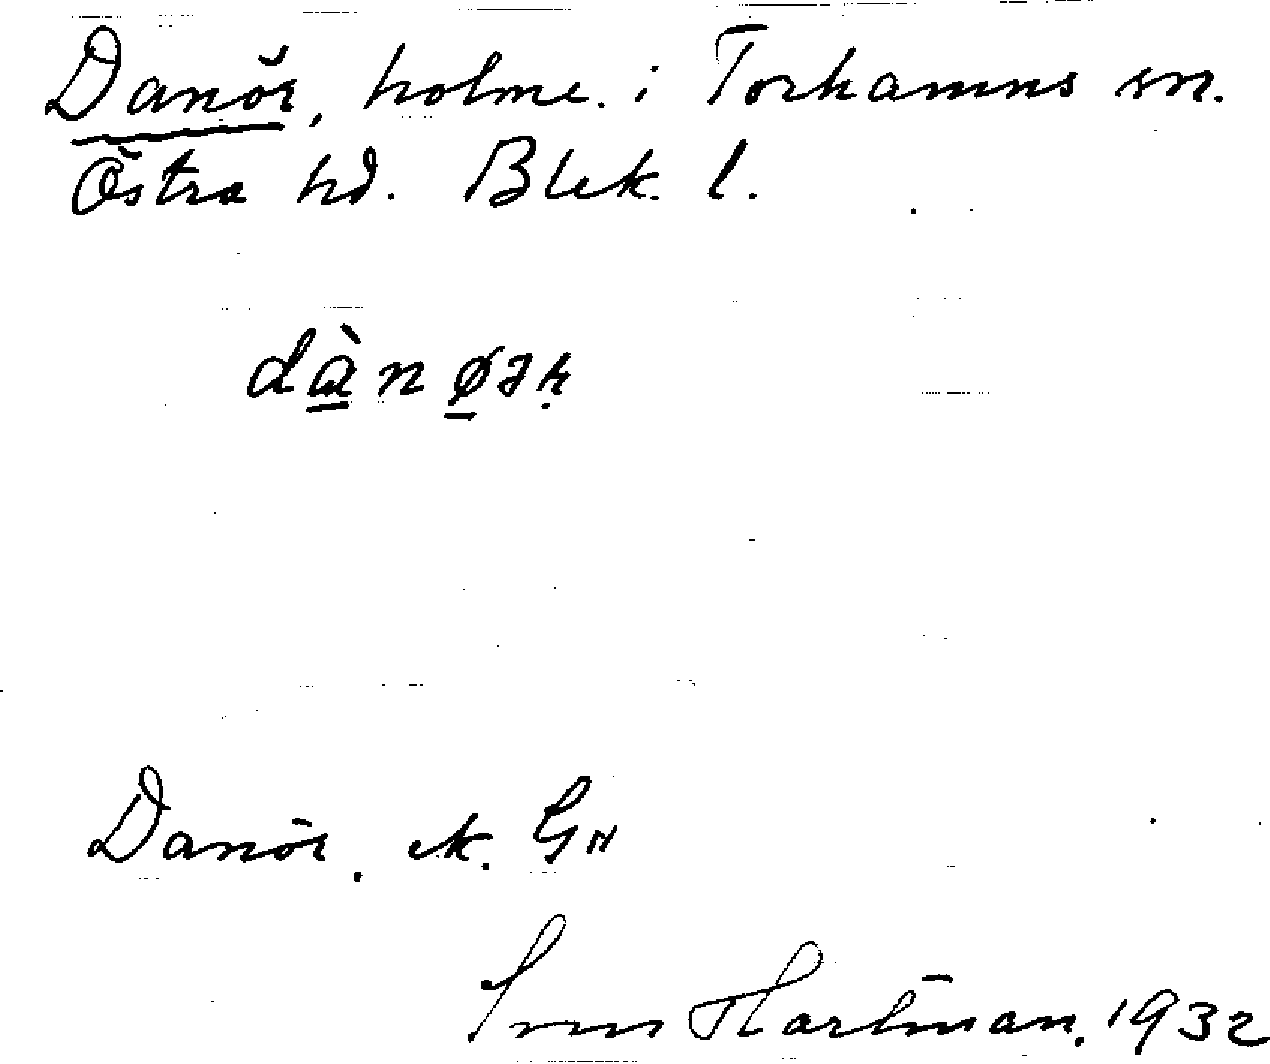 Danör, holme. i Torhamns sn.
Östra hd. Blek. l.
dànøər
Danör. ek. G
Sven Hartman. 1932